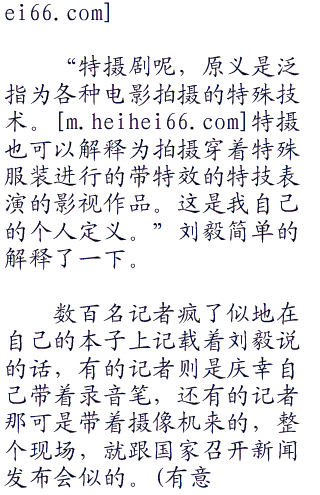 ei66.com]
“特摄剧呢，原义是泛
指为各种电影拍摄的特殊技
术。[m.heihei66.com]特摄
也可以解释为拍摄穿着特殊
服装进行的带特效的特技表
演的影视作品。这是我自己
的个人定义。”刘毅简单的
解释了一下。
数百名记者疯了似地在
自己的本子上记载着刘毅说
的话，有的记者则是庆幸自
己带着录音笔，还有的记者
那可是带着摄像机来的，整
个现场，就跟国家召开新闻
发布会似的。(有意